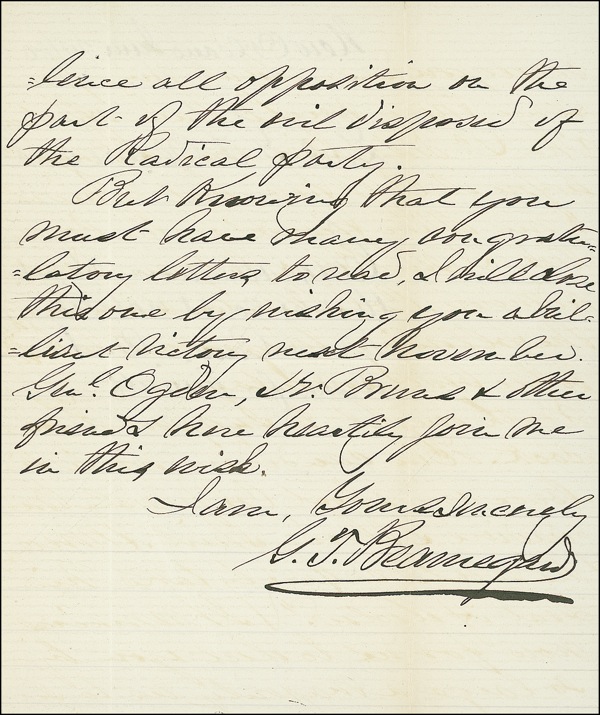 =lence all opposition on the
part of the evil disposed of
the Radical party.
But Knowing that you
must have many congratu=
=latory letters to read, I will close
this one by wishing you a bril=
=liant victory next November.
Genl. Ogden, Dr. Bruns & other
friends here heartily join me
in this wish.
I am, Yours Sincerely
G. T. Beauregard